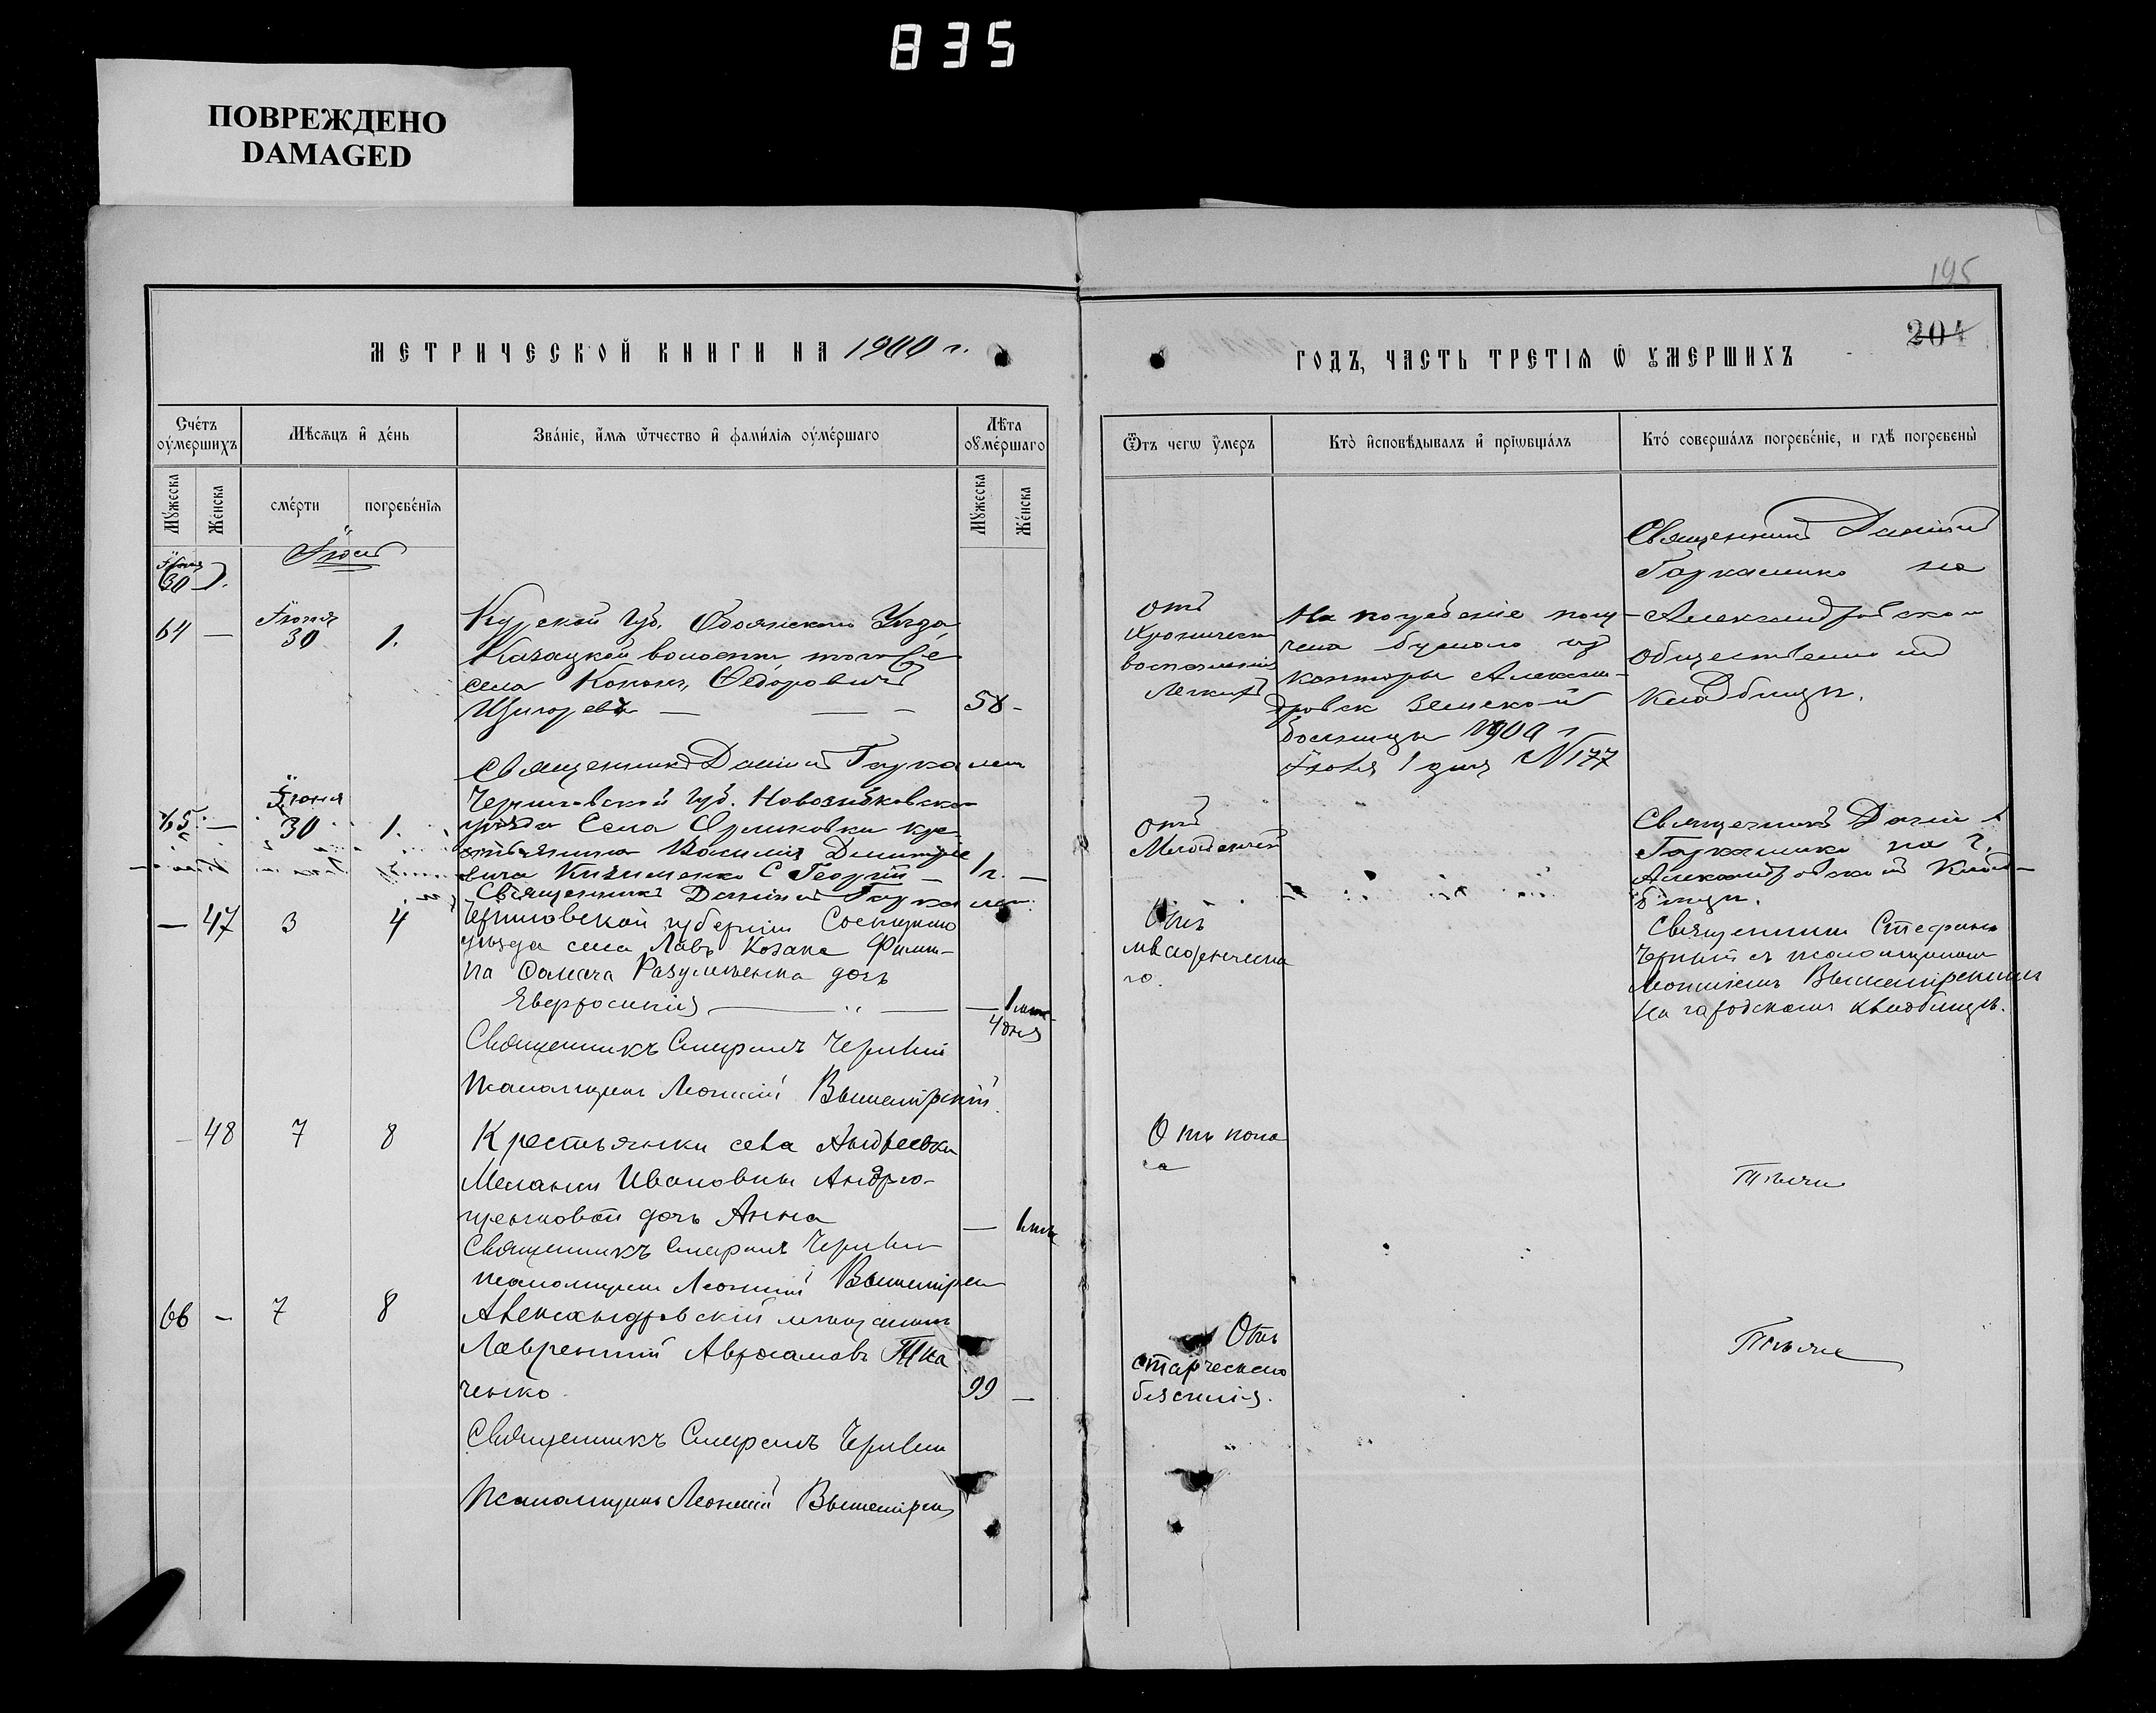 835
ПОВРЕЖДЕНО
DAMAGED
195
204
МЕТРИЧЕСКОЙ КНИГИ НА 1900 г.
ГОДЪ, ЧАСТЬ ТРЕТІѦ Ѡ ОУМЕРШИХЪ
Счетъ оумершихъ
Мѣсѧцъ и день
Званіе, имѧ ѿчество и фамиліѧ оумершаго
Лѣта оумершаго
Мужеска
Женска
смерти
погребеніѧ
Мужеска
Женска
Ѿтъ чегѡ умеръ
Кто исповѣдывалъ и пріѡбщалъ
Кто совершалъ погребеніе, и гдѣ погребены
Іюня 30
Іюль
64 — Іюня 30 1.
Курской Губ. Обоянского Уезда
Казацкой волости того же
села Конон Федорович
58 -
отъ
Хроническ
воспаленія
Легкихъ
На погребеніе полу-
чена бумага из
конторы Алексан-
дровск Земской
больницы 1900 г
Іюля 1 дня № 177
Священник Даниил
на
Александровском
общественном
кладбищи.
Священник Даниил
65 — Іюня 30 1.
Черниговской Губ. Новозибковского
уезда Села кре-
стьянина Василия Дмитрие
вича С Георгий —
1 г. —
отъ
Младенческ
Священник Даниил
на
Александровском Клад-
бищи.
Священник Даниил
— 47 3 4
Черниговской губерніи Сосницкаго
уѣзда села Лавъ Козака Филип-
па Фомича Разумѣенка дочь
Евфросинія — — — 1 мѣс
4 дня
Отъ
младенческа
го.
Священник Стефанъ
Черный съ псаломщикомъ
Леонтіемъ Вышемірскимъ
На городскомъ кладбищѣ.
Священникъ Стефанъ Черный
Псаломщикъ Леонтій Вышемірскій
- 48 7 8
Крестьянки села Андреевки
Меланіи Ивановны Андрю-
щенковой дочь Анна
—
Отъ поно
са
Тѣже
Священникъ Стефанъ Черный
псаломщикъ Леонтій Вышемірск
66 — 7 8
Александровскій мѣщанинъ
Лаврентій Аврамовъ Тка
ченко
99 —
Отъ
старческаго
безсилія.
Тѣже
Священникъ Стефанъ Черный
Псаломщикъ Леонтій Вышемірск